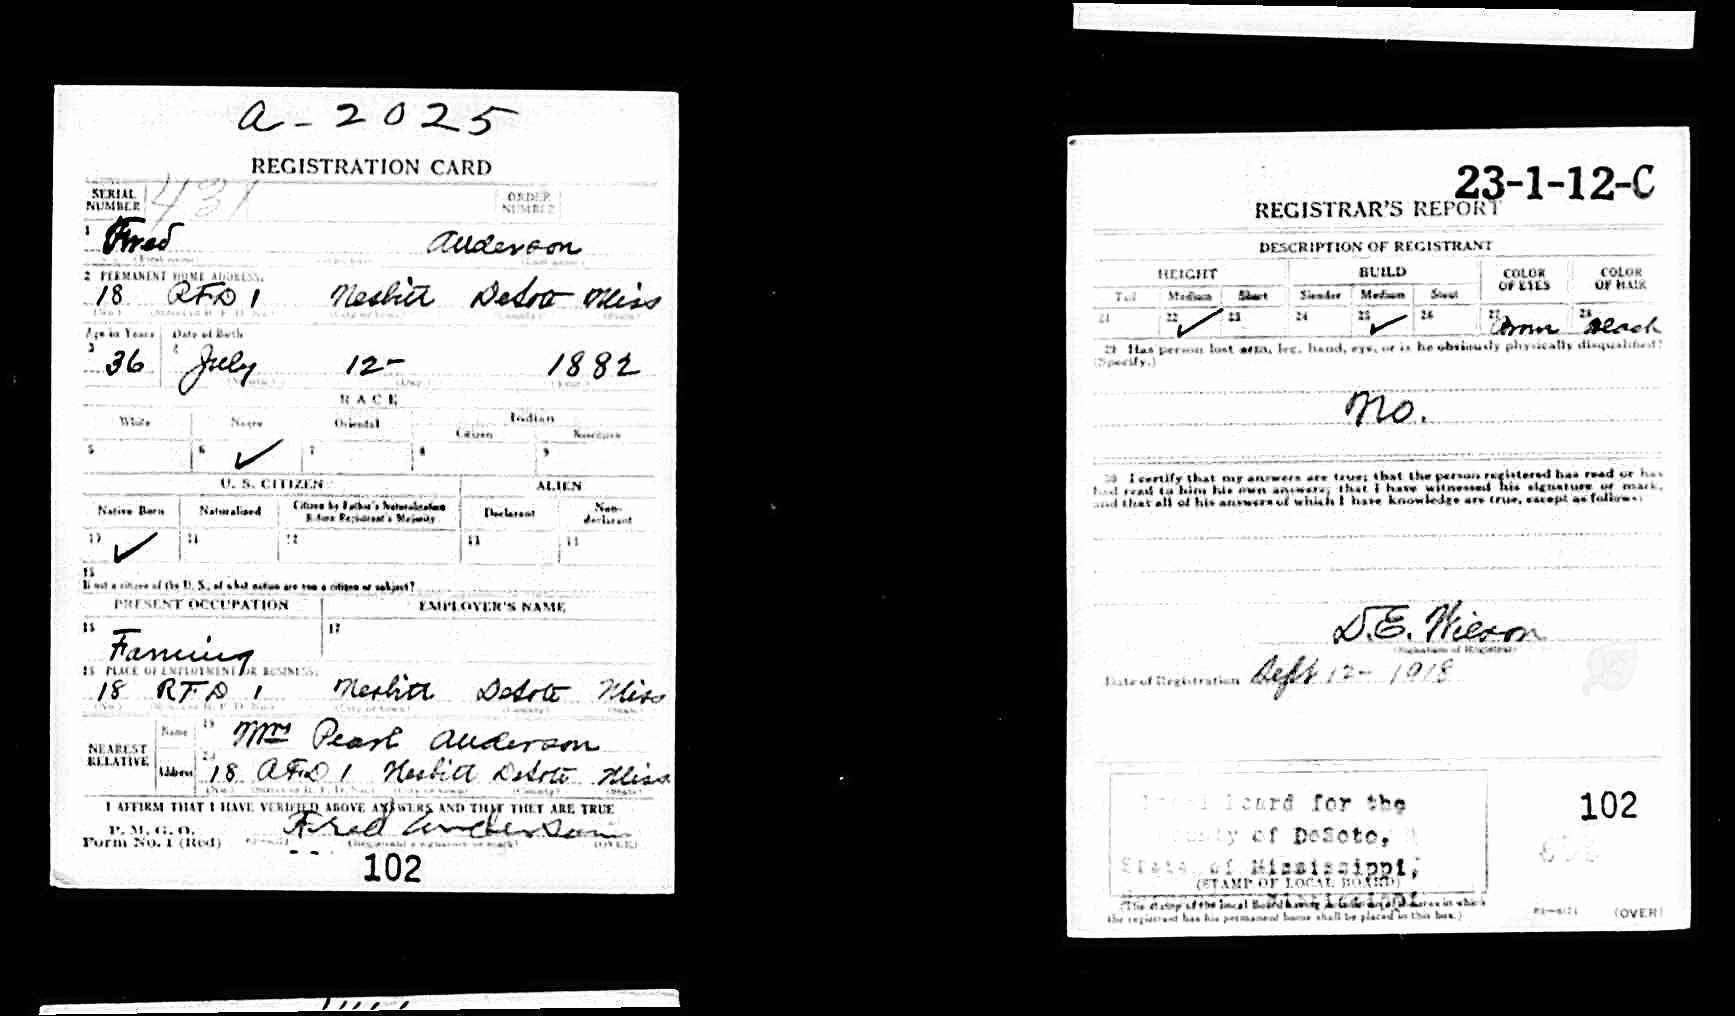 a-2025
REGISTRATION CARD
SERIAL NUMBER 431 ORDER NUMBER
1 Fred Anderson
(First name) (Last name)
2 PERMANENT HOME ADDRESS:
18 RFD 1 Nesbitt DeSoto Miss
(No.) (Street or R. F. D. No.) (City or town) (County) (State)
Age in Years Date of Birth
3 36 4 July 12- 1882
(Month) (Day) (Year)
RACE
White Negro Oriental Indian
Citizen Noncitizen
5 6 ✓ 7 8 9
U. S. CITIZEN ALIEN
Native Born Naturalized Citizen by Father's Naturalization Before Registrant's Majority Declarant Non-declarant
10 ✓ 11 12 13 14
15
If not a citizen of the U. S., of what nation are you a citizen or subject?
PRESENT OCCUPATION EMPLOYER'S NAME
16 Farming 17
18 PLACE OF EMPLOYMENT OR BUSINESS:
18 RFD 1 Nesbitt DeSoto Miss
(No.) (Street or R. F. D. No.) (City or town) (County) (State)
NEAREST RELATIVE Name 19 Mrs Pearl Anderson
Address 20 18 RFD 1 Nesbitt DeSoto Miss
(No.) (Street or R. F. D. No.) (City or town) (County) (State)
I AFFIRM THAT I HAVE VERIFIED ABOVE ANSWERS AND THAT THEY ARE TRUE
P. M. G. O.
Form No. 1 (Red) Fred Anderson
(Registrant's signature or mark) (OVER)
102
23-1-12-C
REGISTRAR'S REPORT
DESCRIPTION OF REGISTRANT
HEIGHT BUILD COLOR OF EYES COLOR OF HAIR
Tall Medium Short Slender Medium Stout
21 22 ✓ 23 24 25 ✓ 26 27 Brown 28 Black
29 Has person lost arm, leg, hand, eye, or is he obviously physically disqualified?
(Specify.)
No.
30 I certify that my answers are true; that the person registered has read or has
had read to him his own answers; that I have witnessed his signature or mark,
and that all of his answers of which I have knowledge are true, except as follows:
D.E. Wilson
(Signature of Registrar)
Date of Registration Sept 12- 1918
Local Board for the
County of DeSoto,
State of Mississippi,
(STAMP OF LOCAL BOARD)
102
(The stamp of the Local Board having jurisdiction of the area in which
the registrant has his permanent home shall be placed in this box.)
(OVER)